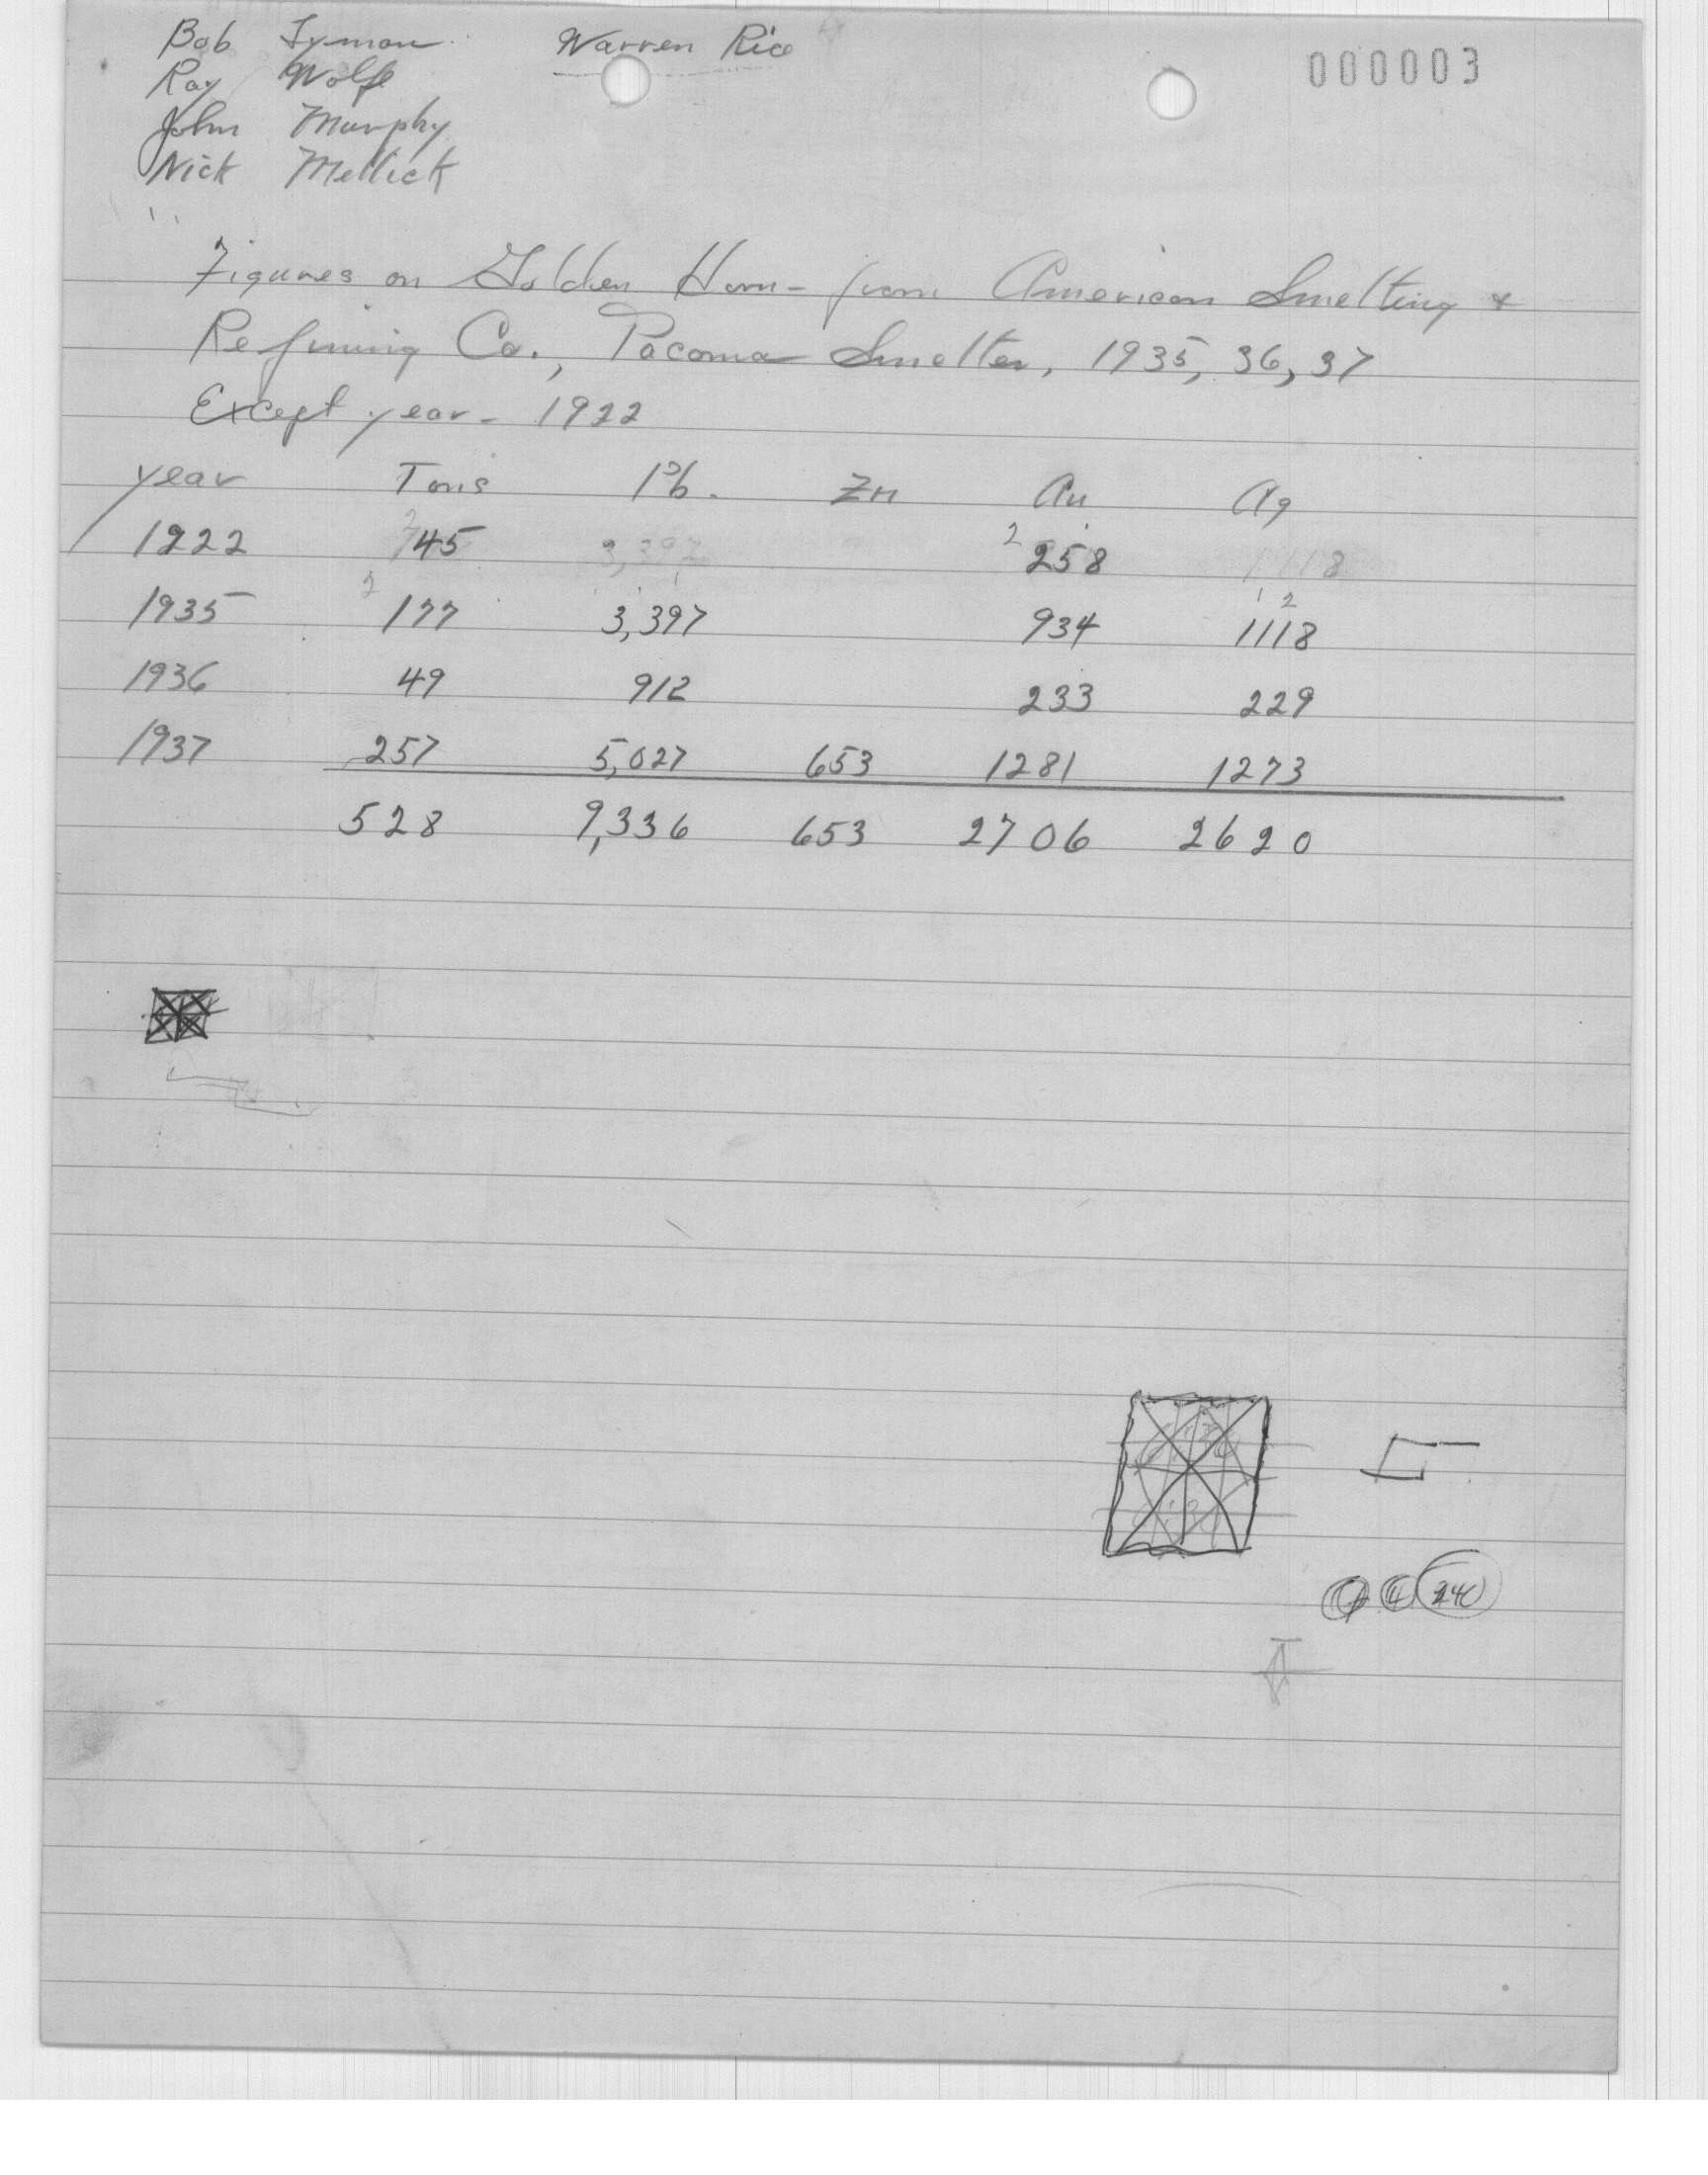 Bob Lyman Warren Rice 000003
Ray Wolfe
John Murphy
Nick Mellick
Figures on Golden Horn - from American Smelting &
Refining Co., Tacoma Smelter, 1935, 36, 37
Except year - 1922
year Tons Pb. Zn Au Ag
1922 45 258
1935 177 3,397 934 1118
1936 49 912 233 229
1937 257 5,027 653 1281 1273
528 9,336 653 2706 2620
4 240